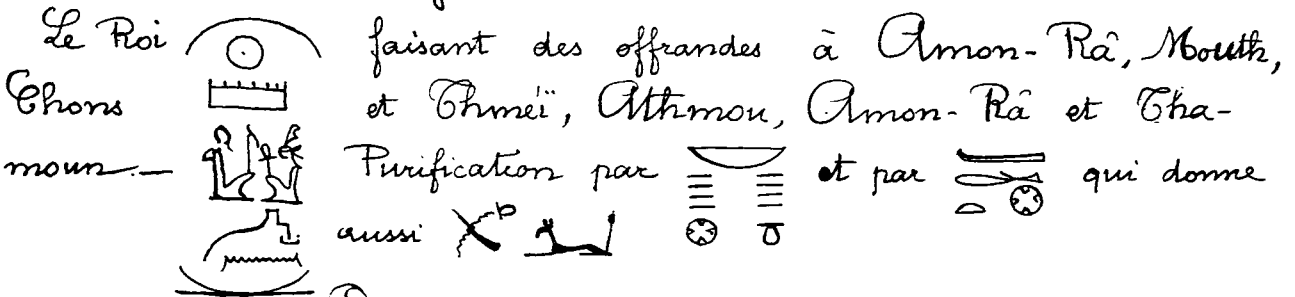 Le Roi faisant des offrandes à Amon-Râ, Mouth,
Chons et Thmeï, Athmou, Amon-Râ et Tha-
moun.— Purification par et par qui donne
aussi